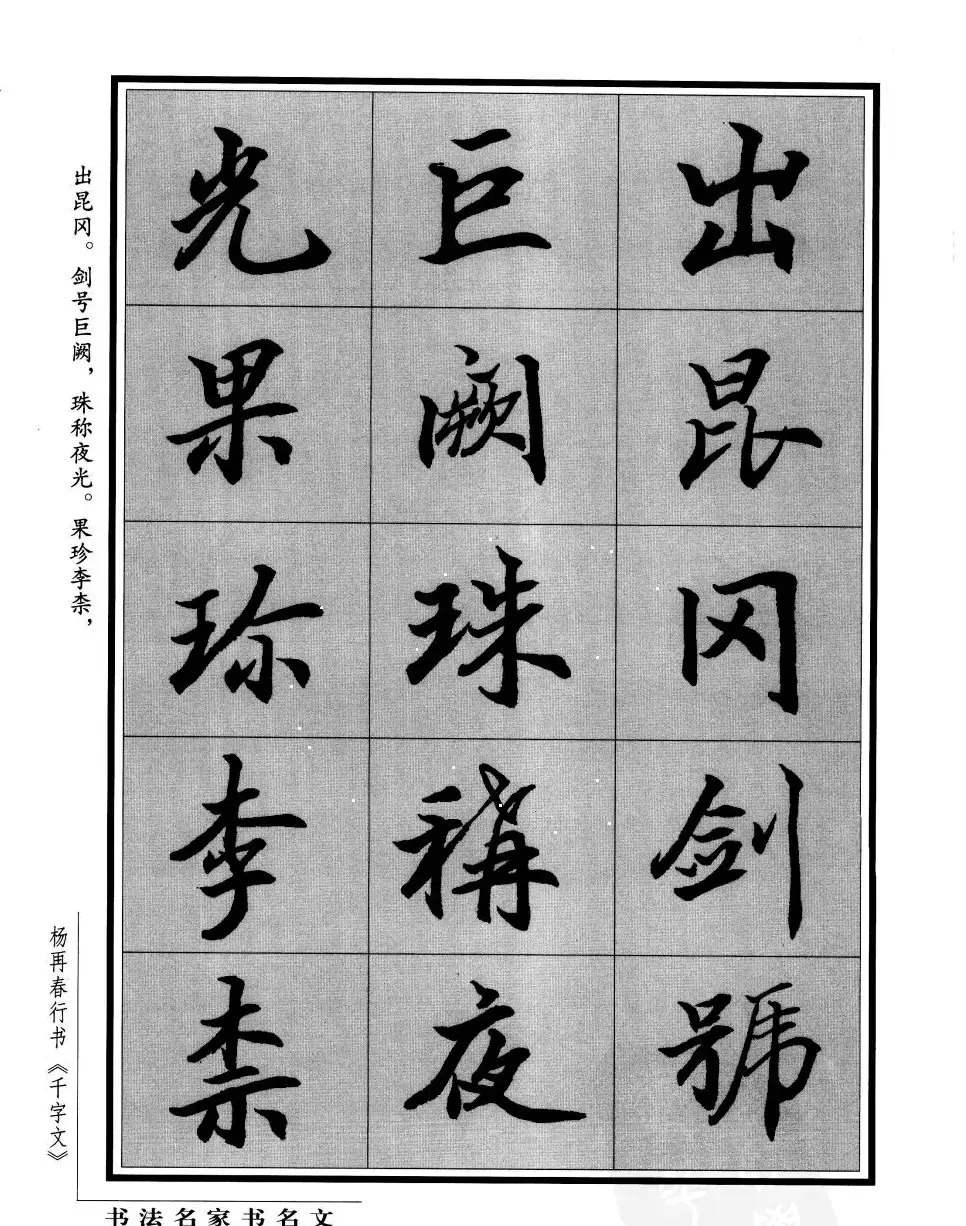 出昆冈剑號
巨阙珠稱夜
光果珍李柰
出昆冈。剑号巨阙，珠称夜光。果珍李柰，
杨再春行书《千字文》
书法名家书名文